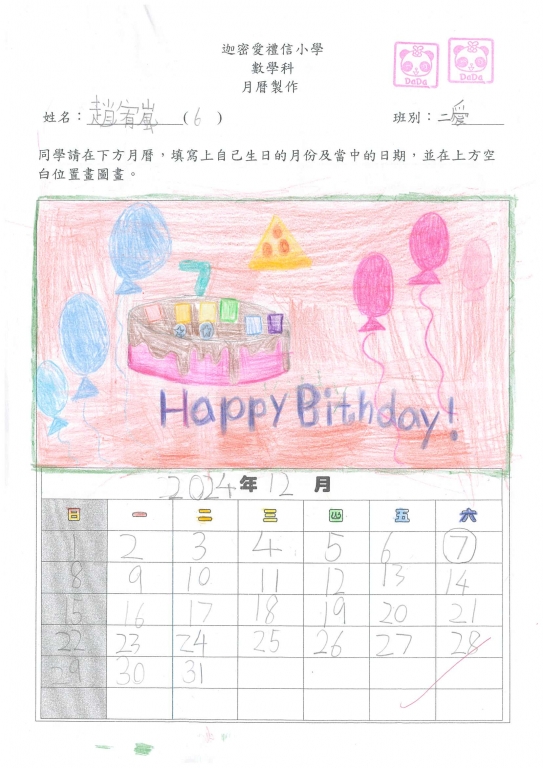 迦密愛禮信小學
數學科
月曆製作
DaDa DaDa
姓名：趙宥嵐 (6) 班別：二愛
同學請在下方月曆，填寫上自己生日的月份及當中的日期，並在上方空
白位置畫圖畫。
7
Happy Bithday!
2024年12月
日 一 二 三 四 五 六
1 2 3 4 5 6 7
8 9 10 11 12 13 14
15 16 17 18 19 20 21
22 23 24 25 26 27 28
29 30 31